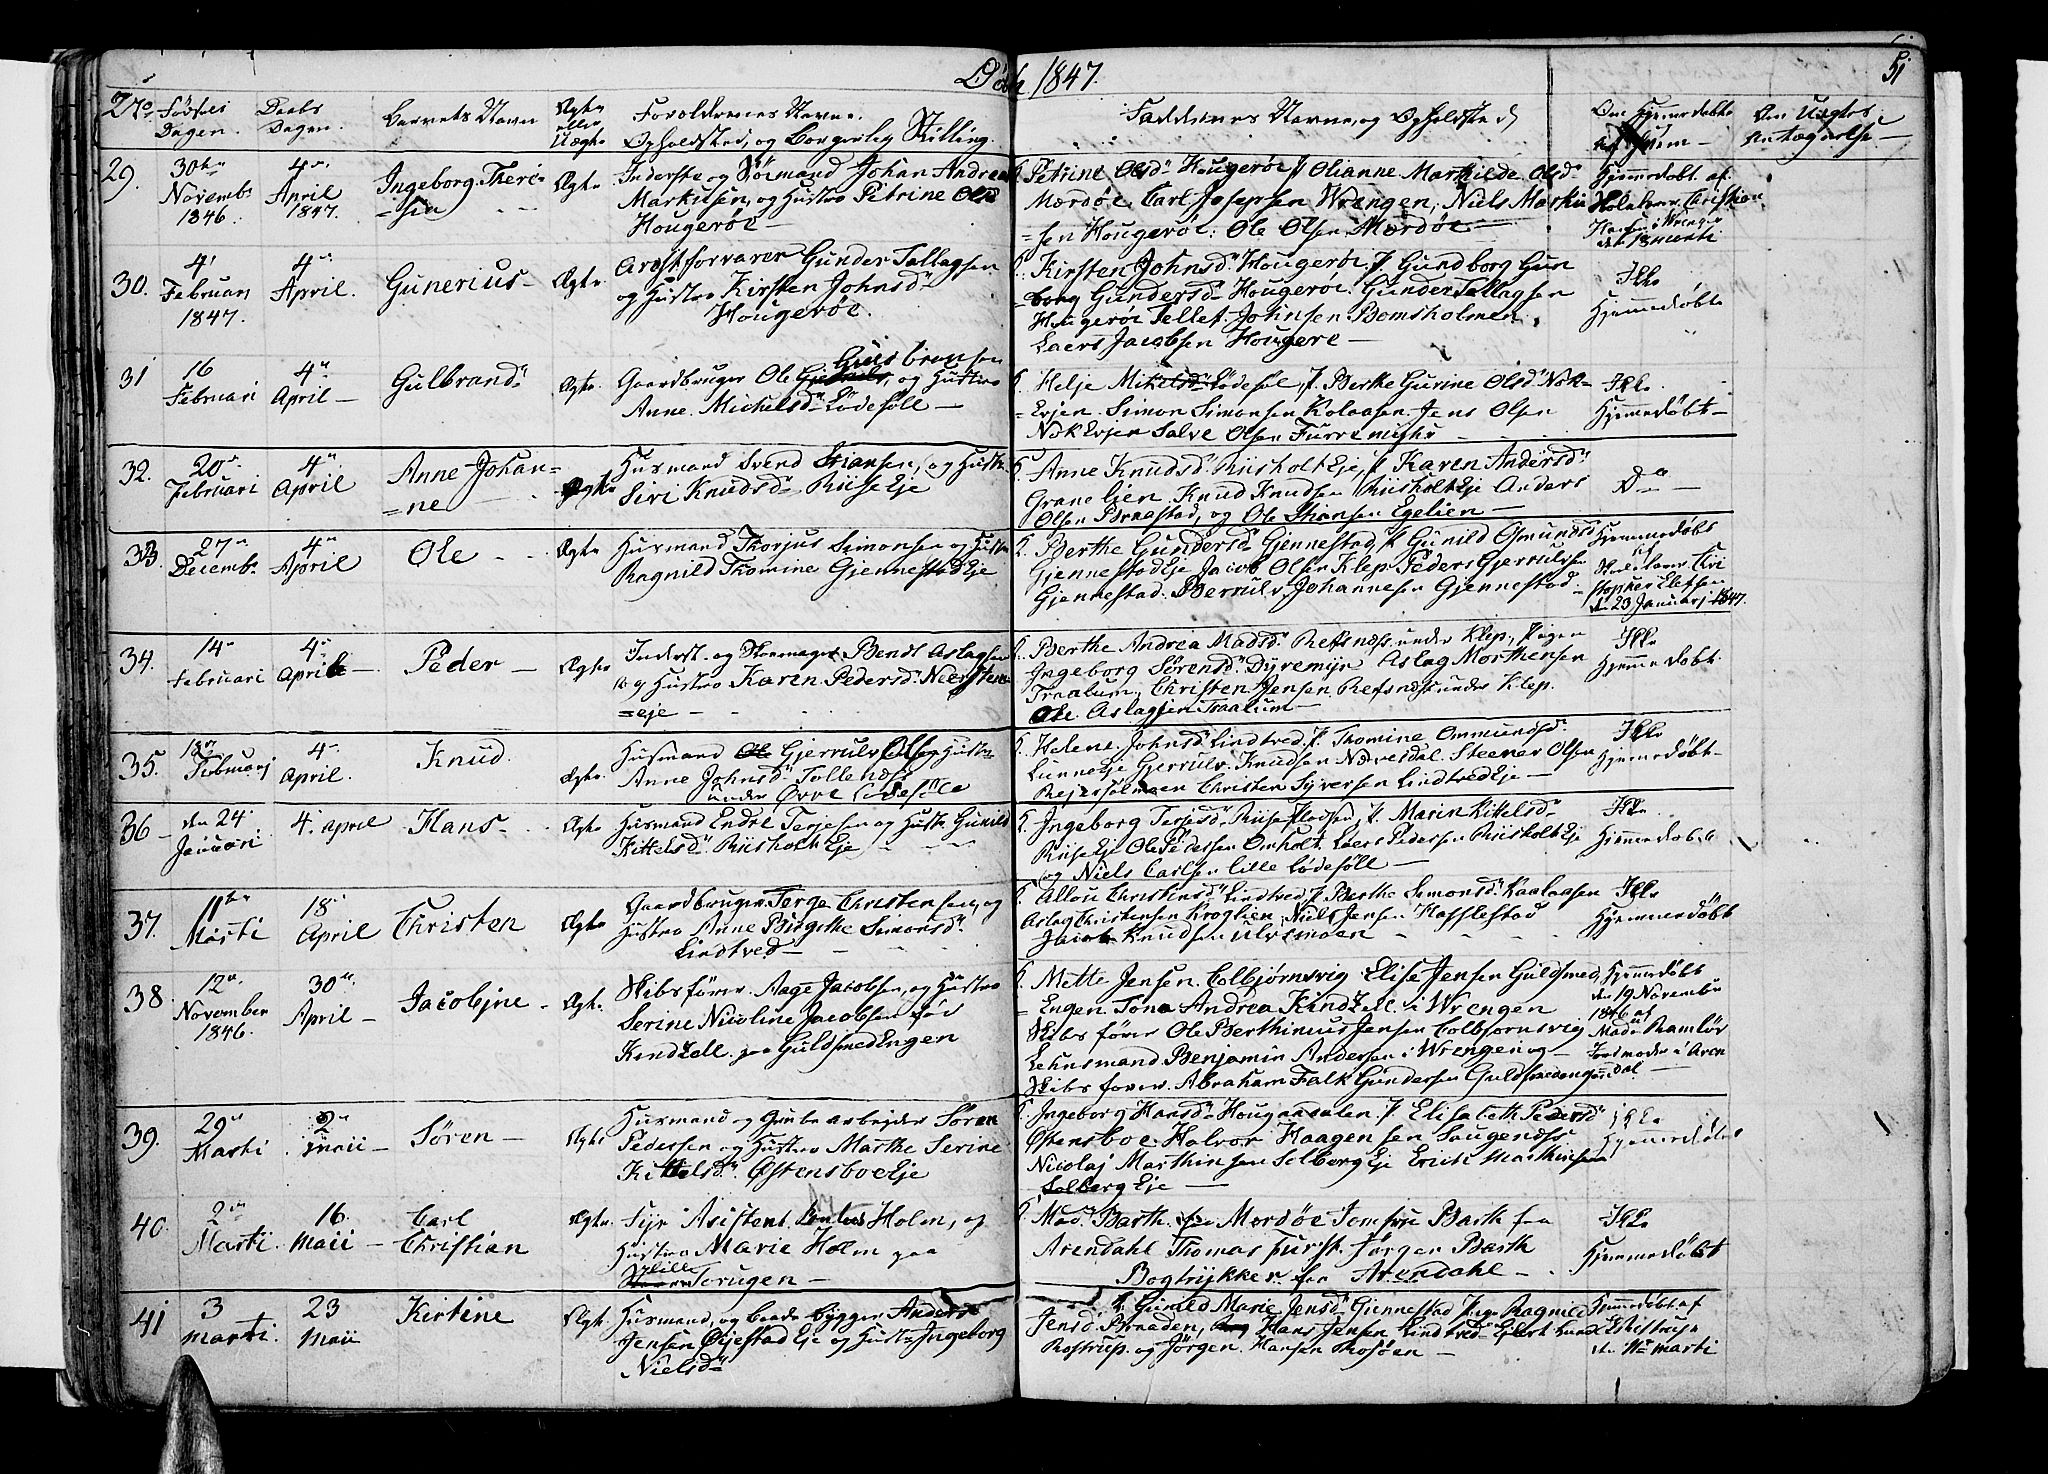 Døbte 1847.
51
No
Fødsels Dagen.
Daabs Dagen.
Barnets Navn
Ægte eller Uægte
Forældrenes Navne, Opholdsted, og Borgerlig Stilling.
Faddernes Navne, og Opholdsted
Om Hjemmedøbte af hvem —
29.
30te Novembr 1846.
4de April 1847.
Ingeborg Theri=
=sia
Ægte
Inderste og Sømand Johan Andreas
Markusen, og Hustro Petrine Olsd
Hougerøe —
Petrine Olsd Hougerøe, Olianne Markilde Olsd
Merdøe, Carl Josepsen Wrengen, Niels Marku
=sen Hougerøe. Ole Olsen Merdøe
Hjemmedøbt af
Holelærer Christian
Hansen i Wrengen
den 13 Marti
30.
4 Februari 1847.
4de April.
Gunerius —
Ægte
Arestforvarer Gunder Tallagsen
og Hustro Kirsten Johnsd
Hougerøe.
Kirsten Johnsd Hougerøe. Gundborg Gun
borg Gundersd Hougerøe. Gunder Tallagsen
Hougerøe Tellef Johnsen Bomsholmen
Laers Jacobsen Hougere —
Ikke
Hjemmedøbt
31
16 Februari
4de April —
Gulbrand
Ægte
Gaardbruger Ole Gulbransen, og Hustro
Anne Michelsd Lødesøll —
Helje Mikelsd Lødesøl, Berthe Gurine Olsd Næk=
=Evjen. Simon Simonsen Kolaasen. Jens Olsen
NækEvjen Salve Olsen Furremyhr
Ikke
Hjemmedøbt —
32.
20de Februari
4de April
Anne Johan=
=ne —
Ægte
Husmand Svend Stiansen, og Hustro
Siri Knudsd Riise Eje
Anne Knudsd RiisholtEje, Karen Andersd
Granelien, Knud Knudsen RiisholtEje Anders
Olsen Bræstad, og Ole Stiansen Egelien —
Do —
33.
27de Decembr
4de April
Ole
Ægte
Husmand Thorjus Simonsen og Hustro
Ragnild Thomine GjennestadEje
Berthe Gundersd Gjennestad, Gunild Osmundsd
GjennestadEje Jacob Olsen Klep, Peders Gjerrulvsen
Gjennestad. Berrulv Johannesen Gjennestad.
Hjemmedøbt
af
Skolelærer Chri
stopher Elefsen
den 23 Januarj 1847.
34.
14de Februari
4de April —
Peder —
Ægte
Inderst og Skomager Bendt Aslagsen
og Hustro Karen Pedersd Neersteen
=eje —
Berthe Andrea Madsd Refsnæs under Klep, Pigen
Ingeborg Sørensd Dyremyr Aslag Morthensen
Traalum, Christen Jensen Refsnæs under Klep.
Ole Aslagsen Traalum —
Ikke
Hjemmedøbt
35.
18de Februarj
4de April.
Knud.
Ægte.
Husmand Gjerrulv Olsen, og Hustro
Anne Johnsd Tollends
under Øvre Lødesøle
Helene Johnsd Lindtved, Thomine Ommundsd
LunneEje Gjerrulv Knudsen Næversdal Steener Olsen
Rejersholmen Christen Syversen LindtvedEje —
Ikke
Hjemmedøbt
36 —
den 24 Januari
4. April
Hans
Ægte
Husmand Endre Terjesen og Hustr Gunild
Kittelsd RiisholtEje
Ingeborg Terjesd Riise Pladsen, Maria Kittelsd
RiiseEje Ole Pedersen Omholt. Laers Pedersen RiisholtEje
og Niels Carlsen Lille Lødesøll —
Ikke
Hjemmedøbt
37.
11te Marti
18de April
Christen
Ægte
Gaardbruger Terge Christensen, og
Hustro Anne Birgithe Simonsd
Lindtved —
Allou Christensd Lindtved, Berthe Simonsd Kaalaasen
Aslag Christensen Kroglien, Niels Jensen Haffelestad
Jacob Knudsen Ulvemoen
Ikke
Hjemmedøbt
38
12te November 1846.
30te April —
Jacobjne
Ægte.
Skibsfører Aage Jacobsen, og Hustro
Serine Nicoline Jacobsen fød
Kindtzell paa GuldsmedEngen
Mette Jensen Colbjørnsvig Elise Jensen Guldsmed
=Engen Tona Andrea Kindtzell i Wrengen
Skibsfører Ole Berthinius Jensen Colbjornsvig
Lehnsmand Benjamin Andersen i Wrengen og —
Skibsfører Abraham Falk Gundersen Guldsmedengen
Hjemmedøbt
den 19 November
1846 af
Madm Ramløv
Jordmoder i Aren
=dal.
39.
29de Marti
2de Maii —
Søren —
Ægte
Husmand og Grubearbejder Søren
Pedersen og Hustro Marthe Serine
Kittelsd ØstensboeEje
Ingeborg Hansd Hougaadalen. Elisabeth Pedersd
Østensboe. Halvor Haagensen Laugends
Nicolaj Marthinsen SolbergEje Erick Marthinsen
SolbergEje —
Ikke
Hjemmedøbt
40.
2den Marti.
16 Maii —
Carl
Christian
Ægte
Fyr Asistent Holm, og
Hustro Marie Holm paa
Lille Torugen —
Mad. Barth Merdøe Jomfru Barth fra
Arendahl Thomas Furst. Jørgen Barth
Bogtrykker fra Arendahl —
Ikke
Hjemmedøbt
41
3 Marti.
23 Maii
Kirtine
Ægte.
Husmand, og Baadebygger Anders
Jensen Øyestad Eje og Hustro Ingeborg
Nielsd
Gunild Marie Jensd Giennestad, Pige Ragnild
Jensd Braaden, Hans Jensen Lindtved Ejlert Lund
Rostrup. og Jørgen Hansen Rosøen —
Hjemmedøbt af
E. Rostrup
den 11te Marti